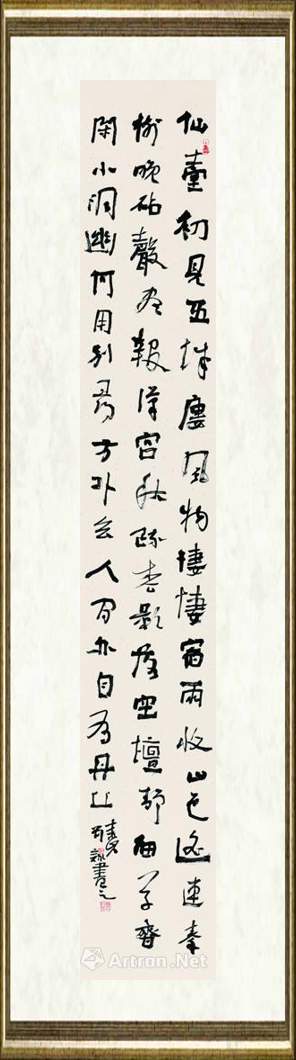 仙臺初見五城廔風物悽悽宿雨收山色遥連秦
樹晚砧聲近報漢宮秋疏松影落空壇靜細草香
閑小洞幽何用别尋方外去人間亦自有丹丘
書之
Artron.Net